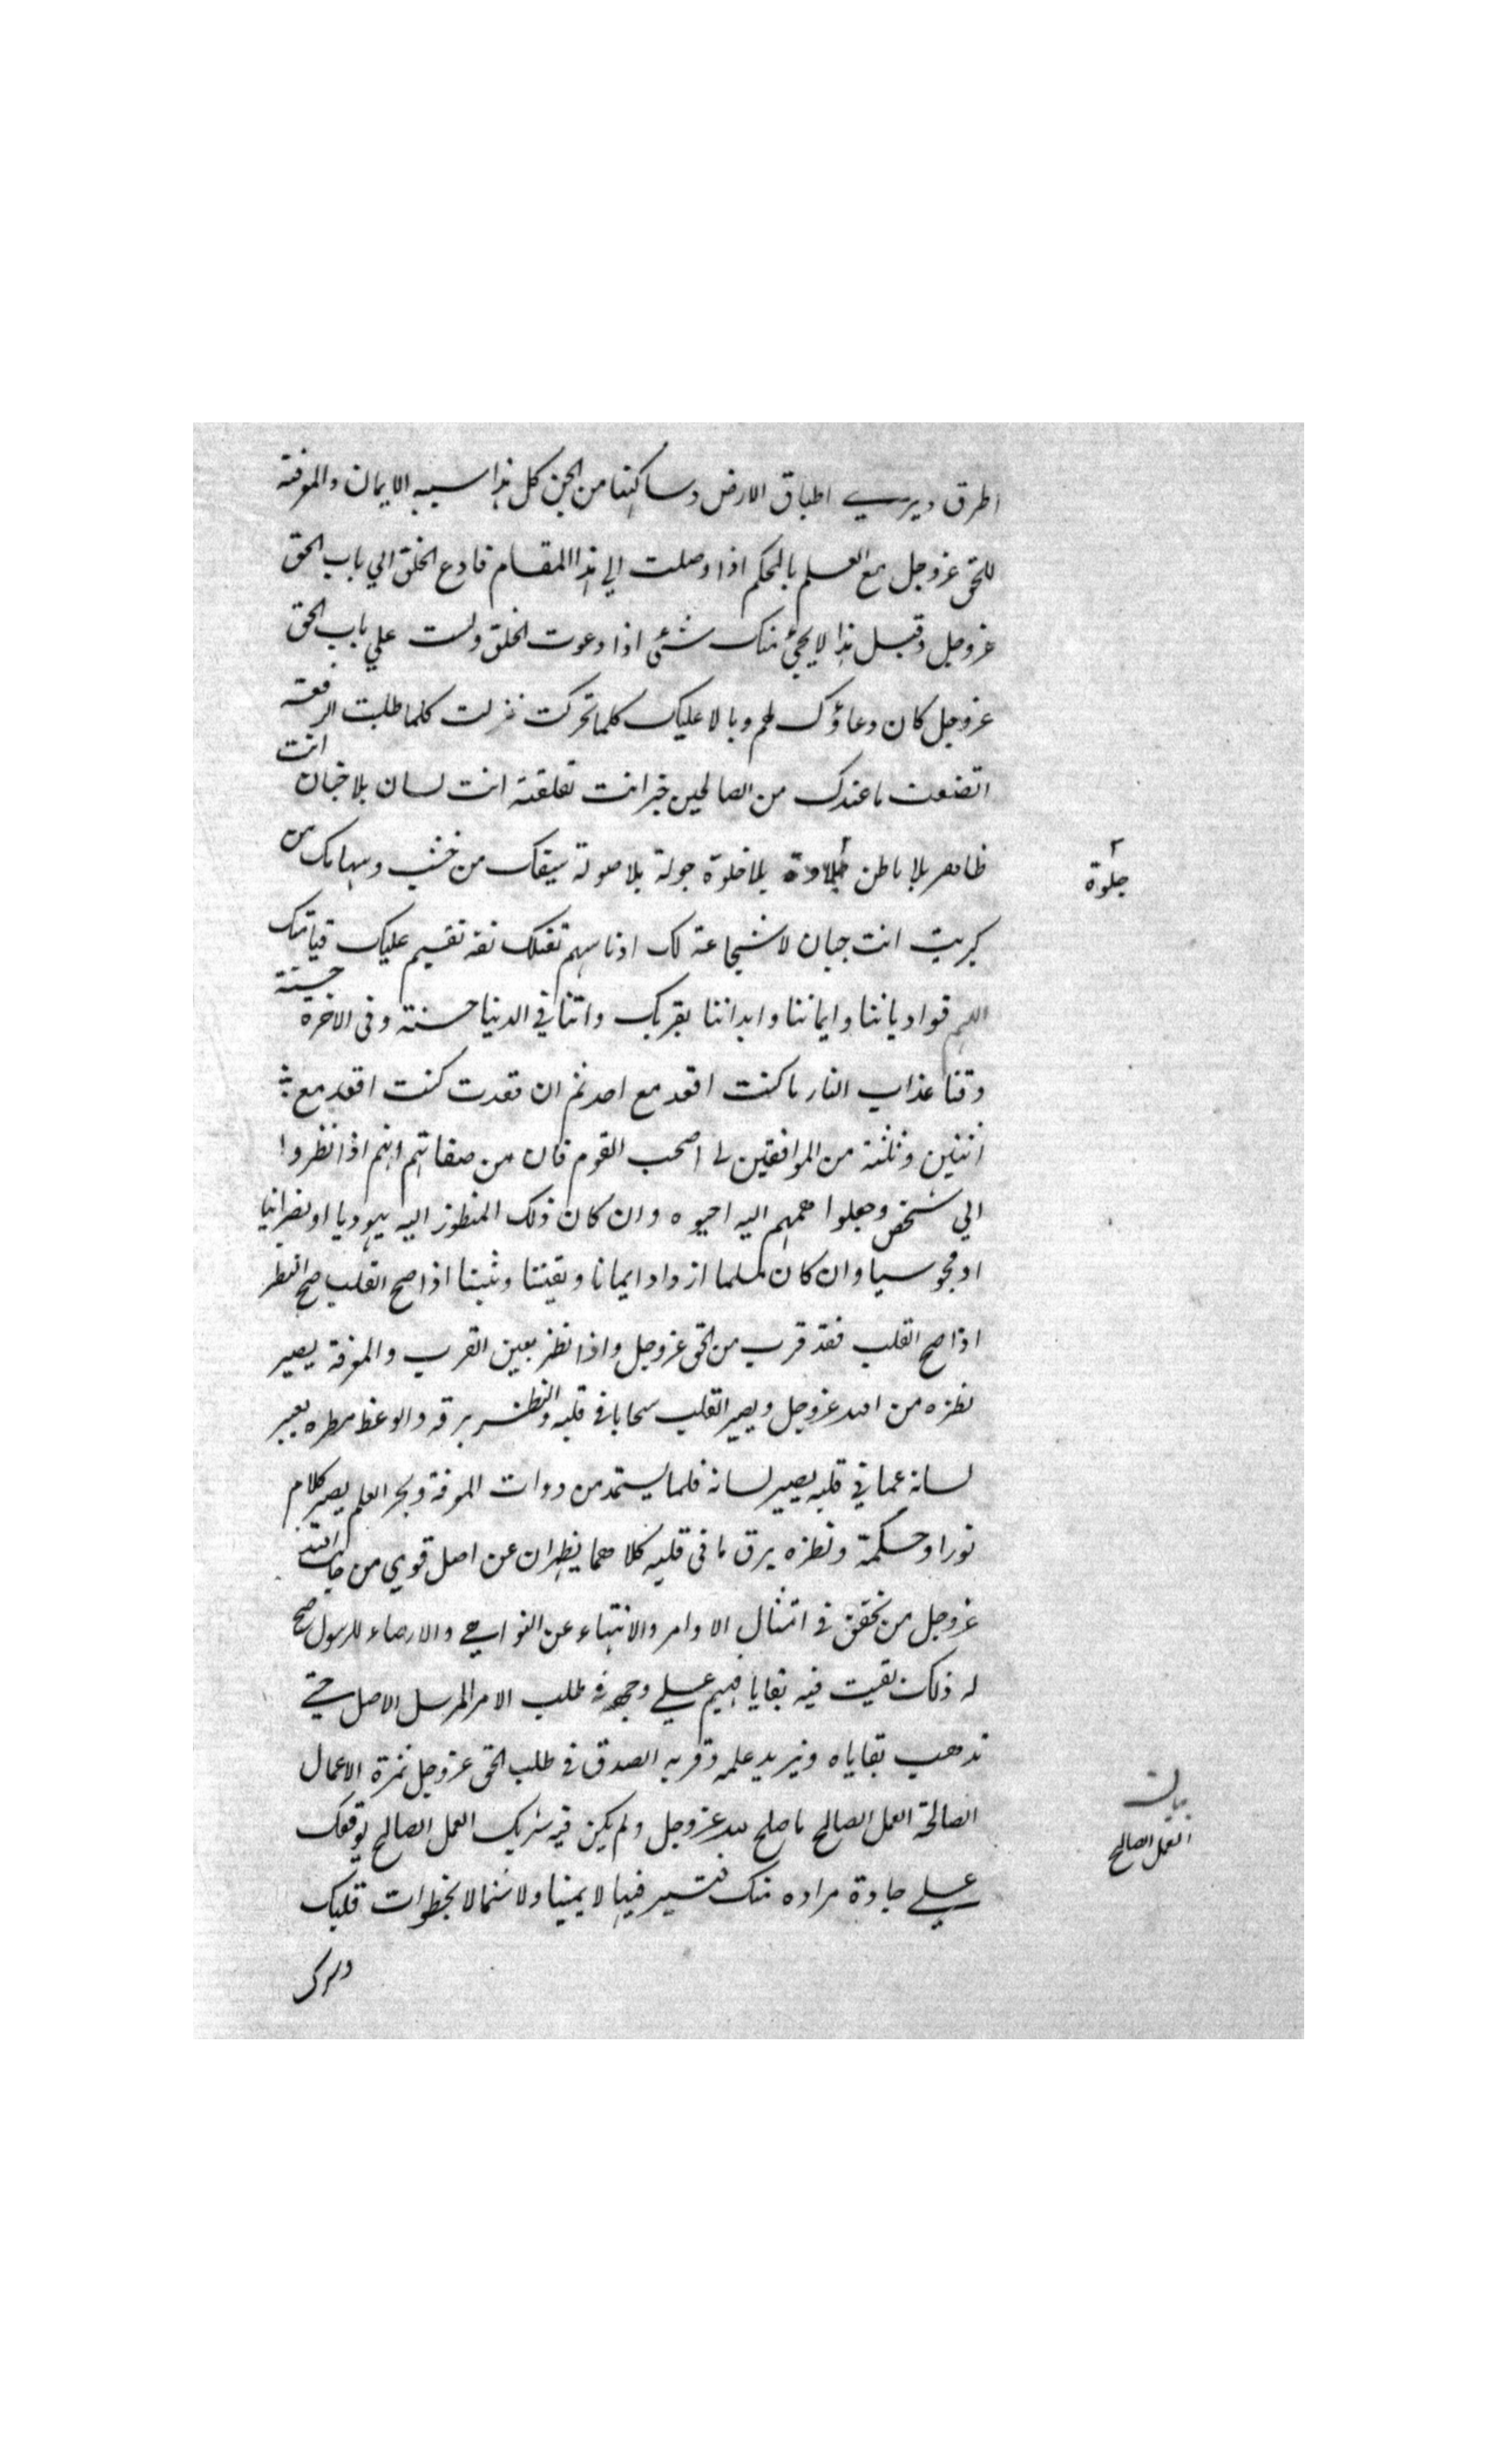 اطرق ويرى اطباق الارض وساكنها من الجن كل هذا سببه الايمان والمعرفة
للحق عز وجل مع العلم بالحكم اذا وصلت الي هذا المقام فادع الخلق الي باب الحق
عز وجل وقبل هذا لا يجئ منك شئ اذا دعوت الخلق ولست علي باب الحق
عز وجل كان دعاؤك لهم وبالا عليك كلما تحركت نزلت كلما طلبت الرفعة
اتضعت ما عندك من الصالحين خبر انت لقلقة انت لسان بلا جنان انت
ظاهر بلا باطن جلوة بلا خلوة جولة بلا صولة سيفك من خشب وسهامك من
جلوة
كبريت انت جبان لا شجاعة لك ادنا سهم تقتلك بقة تقيم عليك قيامتك
اللهم قو ادياننا وايماننا وابداننا بقربك واتنا في الدنيا حسنة وفي الاخرة حسنة
وقنا عذاب النار ما كنت اقعد مع احد ثم ان قعدت كنت اقعد مع
اثنين وثلثة من الموافقين لي اصحب القوم فان من صفاتهم انهم اذا نظروا
الي شخص وجعلوا هممهم اليه احيوه وان كان ذلك المنظور اليه يهوديا او نصرانيا
او مجوسيا وان كان مسلما ازداد ايمانا ويقينا وثبتا اذا صح القلب صح النظر
اذا صح القلب فقد قرب من الحق عز وجل واذا نظر بعين القرب والمعرفة يصير
نظره من الله عز وجل ويصير القلب سحابا في قلبه والنظر برقه والوعظ مطره يعبر
لسانه عما في قلبه يصير لسانه قلما يستمد من دوات المعرفة وبحر العلم يصير كلام
نورا وحكمة ونظره برق ما في قلبه كلاهما يظهران عن اصل قوي من جانب الله
عز وجل من تحقق في امتثال الاوامر والانتهاء عن النواهي والارضاء للرسول صح
له ذلك بقيت فيه بقايا فيهيم علي وجهه في طلب الامر المرسل الاصل حتي
تذهب بقاياه ويزيد علمه وقربه الصدق في طلب الحق عز وجل ثمرة الاعمال
الصالحة العمل الصالح ما صلح لله عز وجل ولم يكن فيه شريك العمل الصالح يوقفك
بيان
العمل الصالح
علي جادة مراده منك فتسير فيها لا يمينا ولا شمالا بخطوات قلبك
وسرك